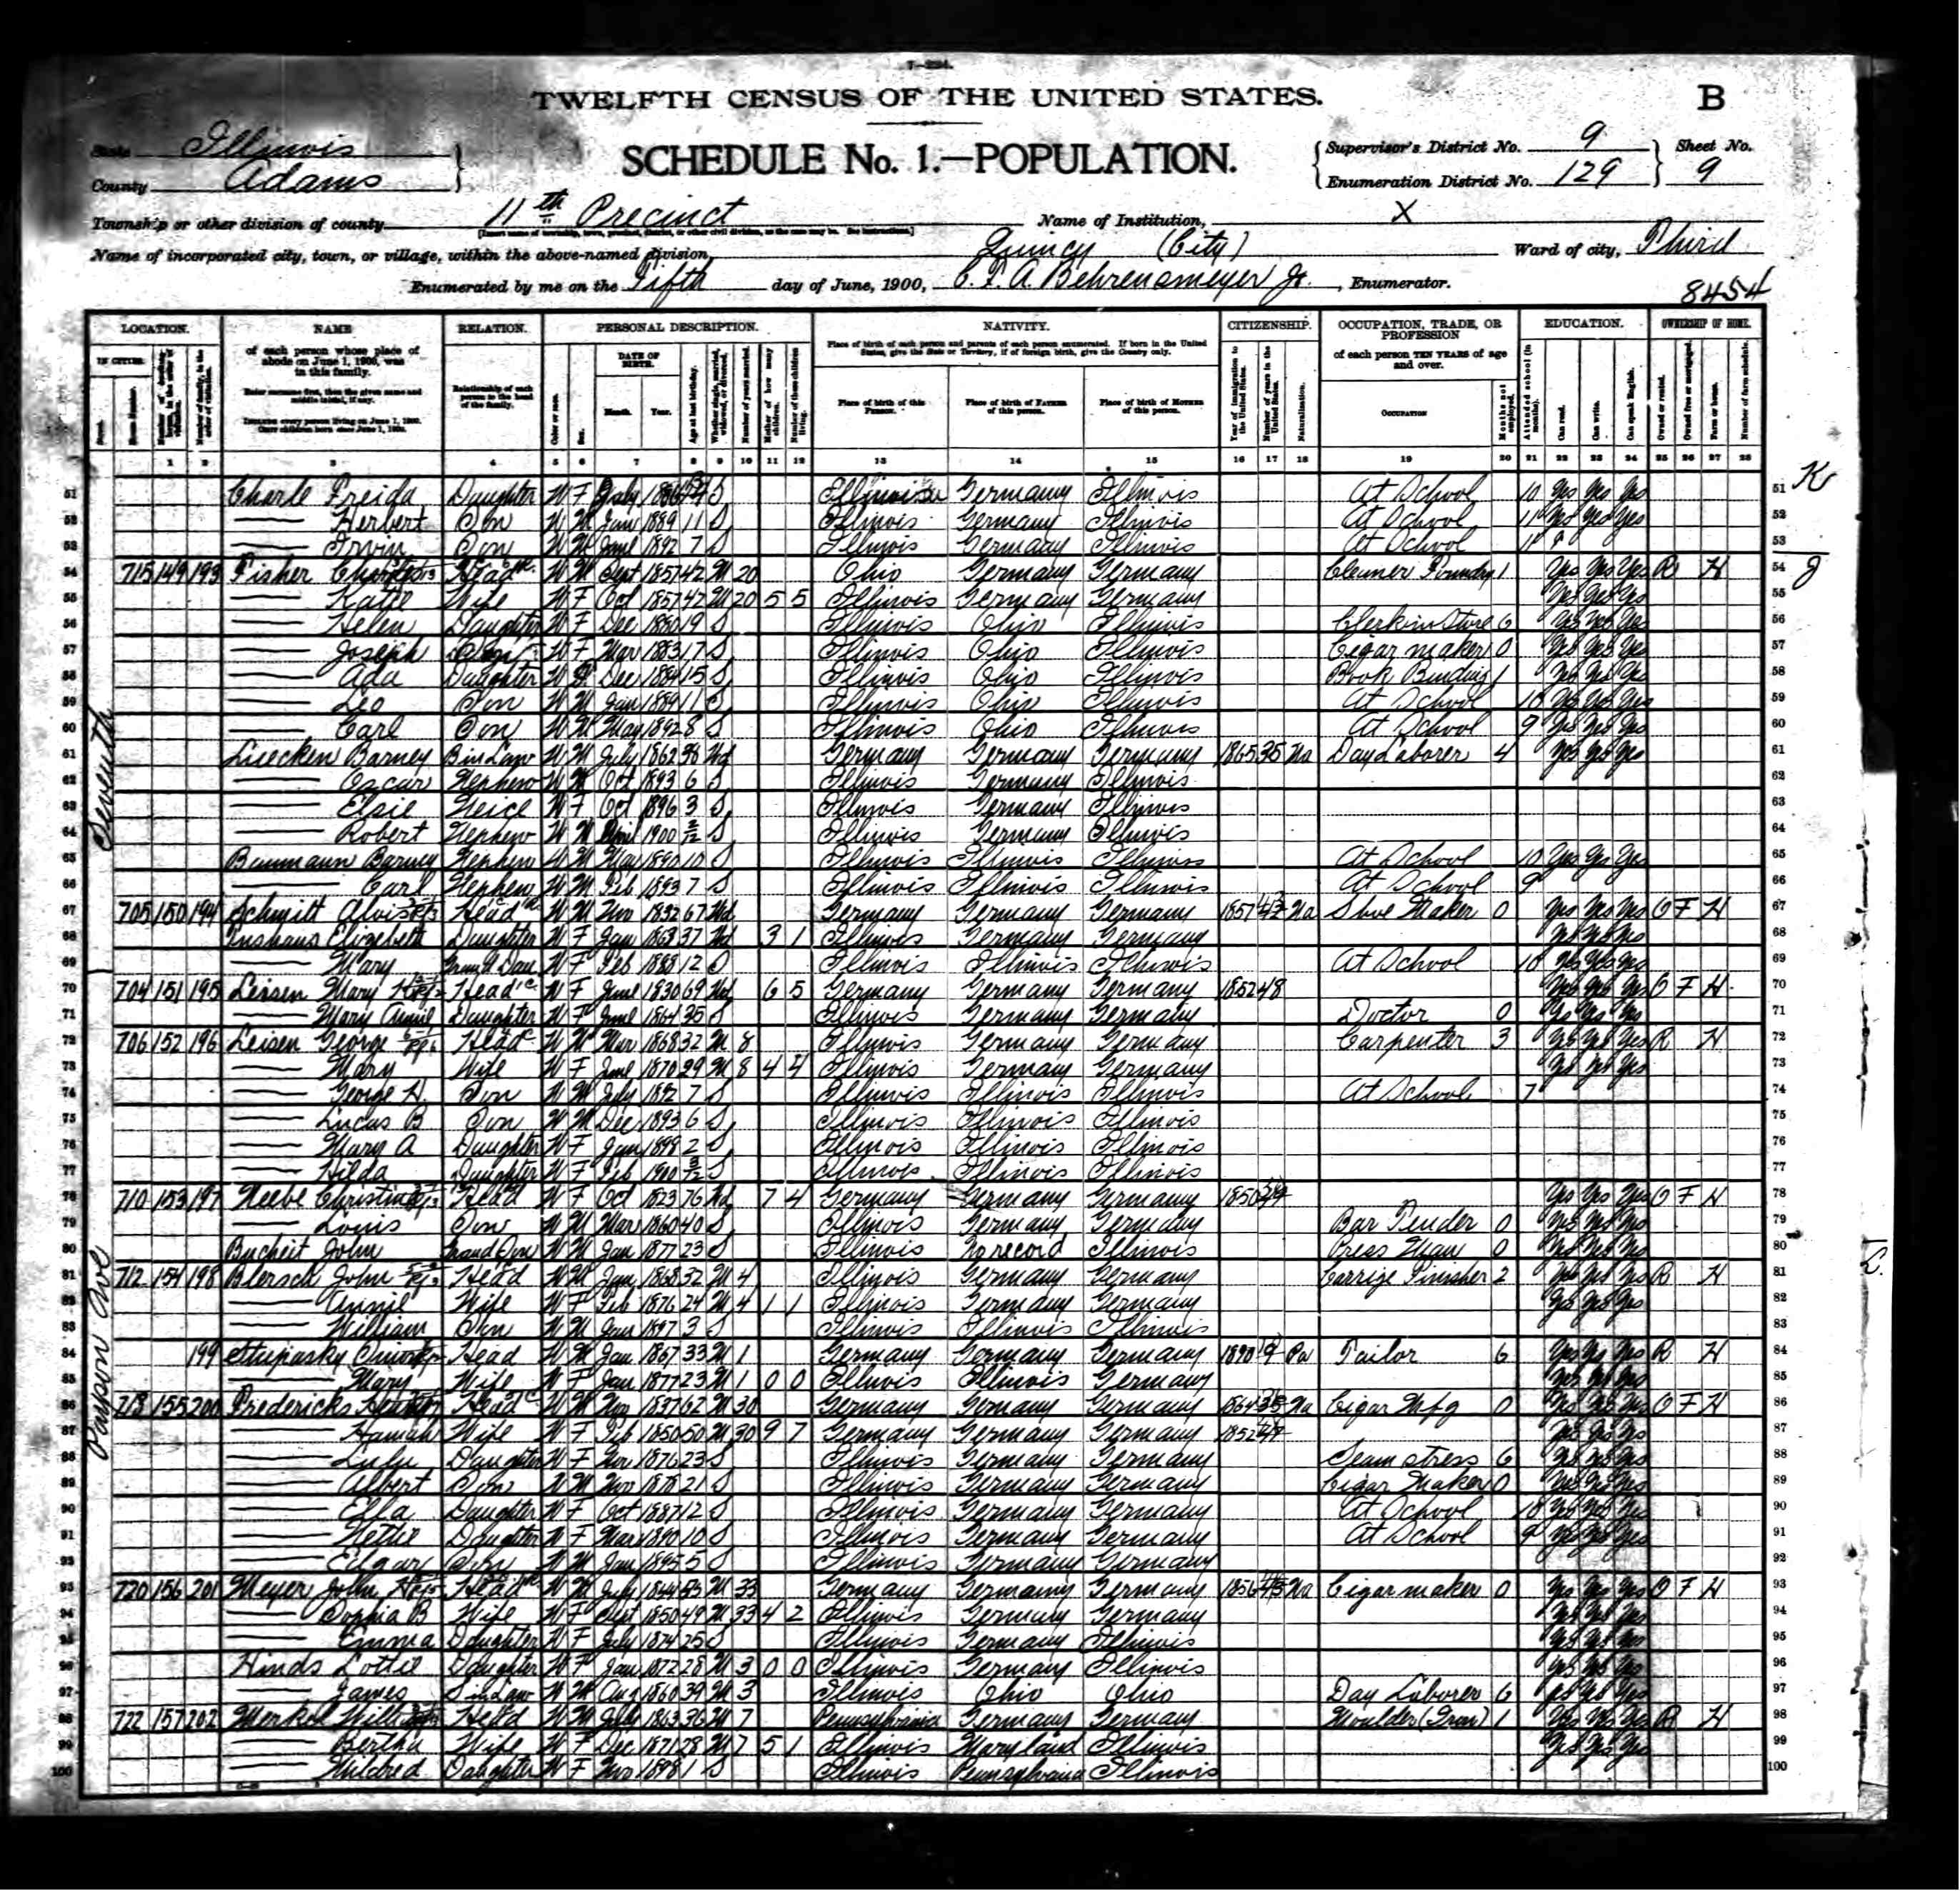 7-224.
TWELFTH CENSUS OF THE UNITED STATES.
B
State Illinois
County Adams
SCHEDULE No. 1.—POPULATION.
Supervisor's District No. 9
Enumeration District No. 129
Sheet No. 9
Township or other division of county 11th Precinct
Name of Institution, X
Name of incorporated city, town, or village, within the above-named division, Quincy (City)
Ward of city, Third
Enumerated by me on the Fifth day of June, 1900, C. F. A. Behrensmeyer Jr. , Enumerator.
8454
LOCATION. NAME RELATION. PERSONAL DESCRIPTION. NATIVITY. CITIZENSHIP. OCCUPATION, TRADE, OR PROFESSION EDUCATION. OWNERSHIP OF HOME.
IN CITIES. of each person whose place of abode on June 1, 1900, was in this family. Relationship of each person to the head of the family. DATE OF BIRTH. Place of birth of each person and parents of each person enumerated. If born in the United States, give the State or Territory; if of foreign birth, give the Country only. of each person TEN YEARS of age and over.
Enter surname first, then the given name and middle initial, if any.
Include every person living on June 1, 1900. Omit children born since June 1, 1900.
Month. Year. Place of birth of this Person. Place of birth of Father of this person. Place of birth of Mother of this person. Occupation
1 2 3 4 5 6 7 8 9 10 11 12 13 14 15 16 17 18 19 20 21 22 23 24 25 26 27 28
51 Charle Freida Daughter W F July S Illinois Germany Illinois At School 10 Yes Yes Yes 51 K
52 Herbert Son W M Jan 1889 11 S Illinois Germany Illinois At School Yes Yes Yes 52
53 Irvin Son W M June 1892 7 S Illinois Germany Illinois At School 53
54 715 149 193 Fisher Charles Head W M Sept 1857 42 M 20 Ohio Germany Germany Cleaner Foundry 1 Yes Yes Yes R H 54
55 Katie Wife W F Oct 1857 42 M 20 5 5 Illinois Germany Germany Yes Yes Yes 55
56 Helen Daughter W F Dec 1880 19 S Illinois Ohio Illinois Clerk in Store 6 Yes Yes Yes 56
57 Joseph W F Mar 1883 17 S Illinois Ohio Illinois Cigar maker 0 Yes Yes Yes 57
58 Ada Daughter W F Dec 1884 15 S Illinois Ohio Illinois Book Binding 1 Yes Yes Yes 58
59 Leo Son W M Jan 1889 11 S Illinois Ohio Illinois At School 10 Yes Yes Yes 59
60 Carl Son W M May 1892 8 S Illinois Ohio Illinois At School 9 Yes Yes Yes 60
Seventh
61 Luecken Barney B in Law W M July 1862 38 Wd Germany Germany Germany 1865 35 Na Day Laborer 4 Yes Yes Yes 61
62 Oscar Nephew W M Oct 1893 6 S Illinois Germany Illinois 62
63 Elsie Neice W F Oct 1896 3 S Illinois Germany Illinois 63
64 Robert Nephew W M April 1900 2/12 S Illinois Germany Illinois 64
65 Baumann Barney Nephew W M May 1890 10 S Illinois Illinois Illinois At School 10 Yes Yes Yes 65
66 Carl Nephew W M Feb 1893 7 S Illinois Illinois Illinois At School 9 66
67 705 150 194 Schmitt Head W M Nov 1832 67 Wd Germany Germany Germany 1857 Na Shoe Maker 0 Yes Yes Yes O F H 67
68 Elizebeth Daughter W F Jan 1863 37 Wd 3 1 Illinois Germany Germany Yes Yes Yes 68
69 Mary Grand Dau W F Feb 1888 12 S Illinois Illinois Illinois At School 10 Yes Yes Yes 69
70 704 151 195 Leisen Mary Head W F June 1830 69 Wd 6 5 Germany Germany Germany 1852 48 Yes Yes Yes O F H 70
71 Mary Annie Daughter W F June 1864 35 S Illinois Germany Germany Doctor 0 Yes Yes Yes 71
72 706 152 196 Leisen George Head W M Mar 1868 32 M 8 Illinois Germany Germany Carpenter 3 Yes Yes Yes R H 72
73 Mary Wife W F June 1870 29 M 8 4 4 Illinois Germany Germany Yes Yes Yes 73
74 George H. Son W M July 1892 7 S Illinois Illinois Illinois At School 7 74
75 Lucus B Son W M Dec 1893 6 S Illinois Illinois Illinois 75
76 Mary A Daughter W F Jan 1898 2 S Illinois Illinois Illinois 76
77 Hilda Daughter W F Feb 1900 3/12 S Illinois Illinois Illinois 77
78 710 153 197 Heebe Christina Head W F Oct 1823 76 Wd 7 4 Germany Germany Germany 1850 Yes Yes Yes O F H 78
79 Louis Son W M Mar 1860 40 S Illinois Germany Germany Bar Tender 0 Yes Yes Yes 79
80 Bucheit John Grand Son W M Jan 1877 23 S Illinois No record Illinois Press Man 0 Yes Yes Yes 80
Payson Ave
81 712 154 198 Blersch John Head W M Jan 1868 32 M 4 Illinois Germany Germany Carrige Finisher 2 Yes Yes Yes R H 81
82 Annie Wife W F Feb 1876 24 M 4 1 1 Illinois Germany Germany Yes Yes Yes 82
83 William Son W M Jan 1897 3 S Illinois Illinois Illinois 83
84 199 Head W M Jan 1867 33 M 1 Germany Germany Germany 1890 Pa Tailor 6 Yes Yes Yes R H 84
85 Mary Wife W F Jan 1877 23 M 1 0 0 Illinois Illinois Germany Yes Yes Yes 85
86 718 155 200 Fredericks Head W M Nov 1837 62 M 30 Germany Germany Germany 1864 Na Cigar Mfg 0 Yes Yes Yes O F H 86
87 Hannah Wife W F Feb 1850 50 M 30 9 7 Germany Germany Germany 1852 Yes Yes Yes 87
88 Lulu Daughter W F Nov 1876 23 S Illinois Germany Germany Seamstress 6 Yes Yes Yes 88
89 Albert Son W M Nov 1878 21 S Illinois Germany Germany Cigar Maker 0 Yes Yes Yes 89
90 Ella Daughter W F Oct 1887 12 S Illinois Germany Germany At School 10 Yes Yes Yes 90
91 Nettie Daughter W F Mar 1890 10 S Illinois Germany Germany At School 9 Yes Yes Yes 91
92 Edgar W M Jan 1895 5 S Illinois Germany Germany 92
93 720 156 201 Meyer John Head W M July 1844 M 33 Germany Germany Germany 1856 Na Cigar maker 0 Yes Yes Yes O F H 93
94 Sophia B Wife W F Sept 1850 49 M 33 4 2 Illinois Germany Germany Yes Yes Yes 94
95 Emma Daughter W F July 1874 25 S Illinois Germany Illinois Yes Yes Yes 95
96 Hinds Lottie Daughter W F Jan 1872 28 M 3 0 0 Illinois Germany Illinois Yes Yes Yes 96
97 James S in Law W M Aug 1860 39 M 3 Illinois Ohio Ohio Day Laborer 6 Yes Yes Yes 97
98 722 157 202 Merkel Head W M July 1863 36 M 7 Pennsylvania Germany Germany Moulder (Iron) 1 Yes Yes Yes R H 98
99 Bertha Wife W F Dec 1871 28 M 7 5 1 Illinois Maryland Illinois Yes Yes Yes 99
100 Mildred Daughter W F Nov 1898 1 S Illinois Pennsylvania Illinois 100